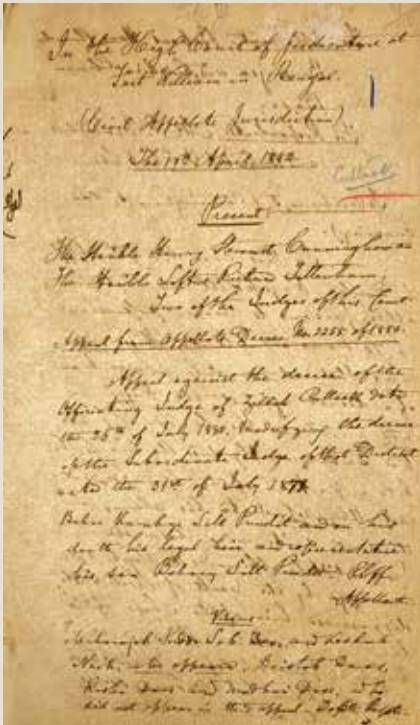 In the High Court of Judicature at
Fort William in Bengal.
(Civil Appellate Jurisdiction)
The 19th April, 1882
Cuttack
Present
The Hon'ble Henry Stewart Cunningham
The Hon'ble Loftus Richard Tottenham
Two of the Judges of this Court
Appeal from Appellate Decree No. 2255 of 1880.
Appeal against the decree of the
Officiating Judge of Zillah Cuttack dated
the 26th of July 1880, modifying the decree
of the Subordinate Judge of that District
dated the 31st of July
death his legal heir and representative
his son Pundit Plff
Appellant
Versus
and
who appears, Doss,
Doss and Doss, who
did not appear in this appeal. Defts Respts.